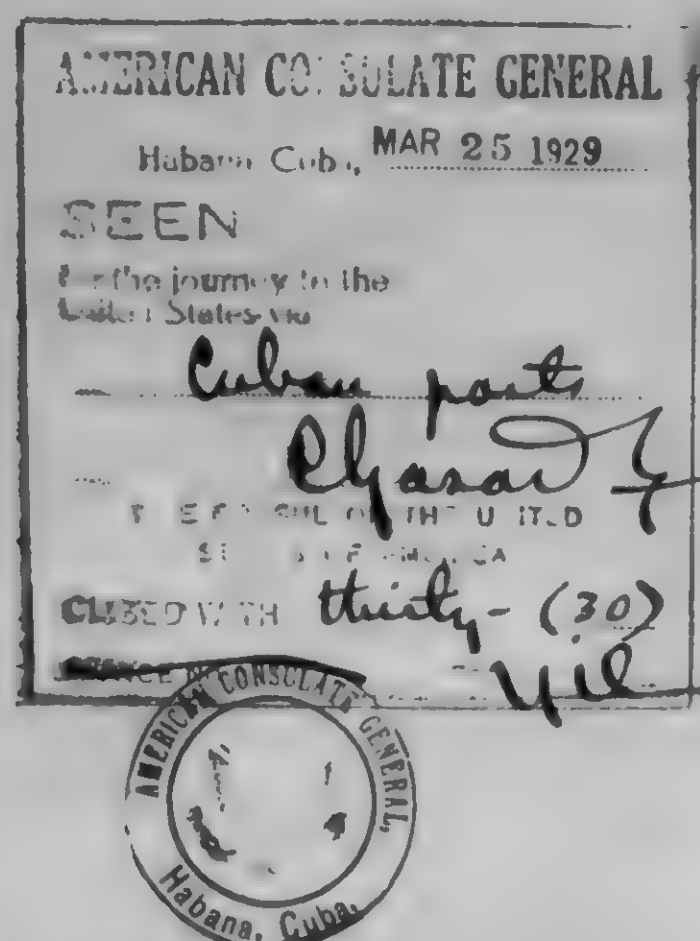 AMERICAN CONSULATE GENERAL
Habana, Cuba, MAR 25 1929
SEEN
For the journey to the
United States via
Cuban ports
THE CONSUL OF THE UNITED
STATES OF AMERICA
CLOSED WITH thirty- (30)
AMERICAN CONSULATE GENERAL,
Habana, Cuba.